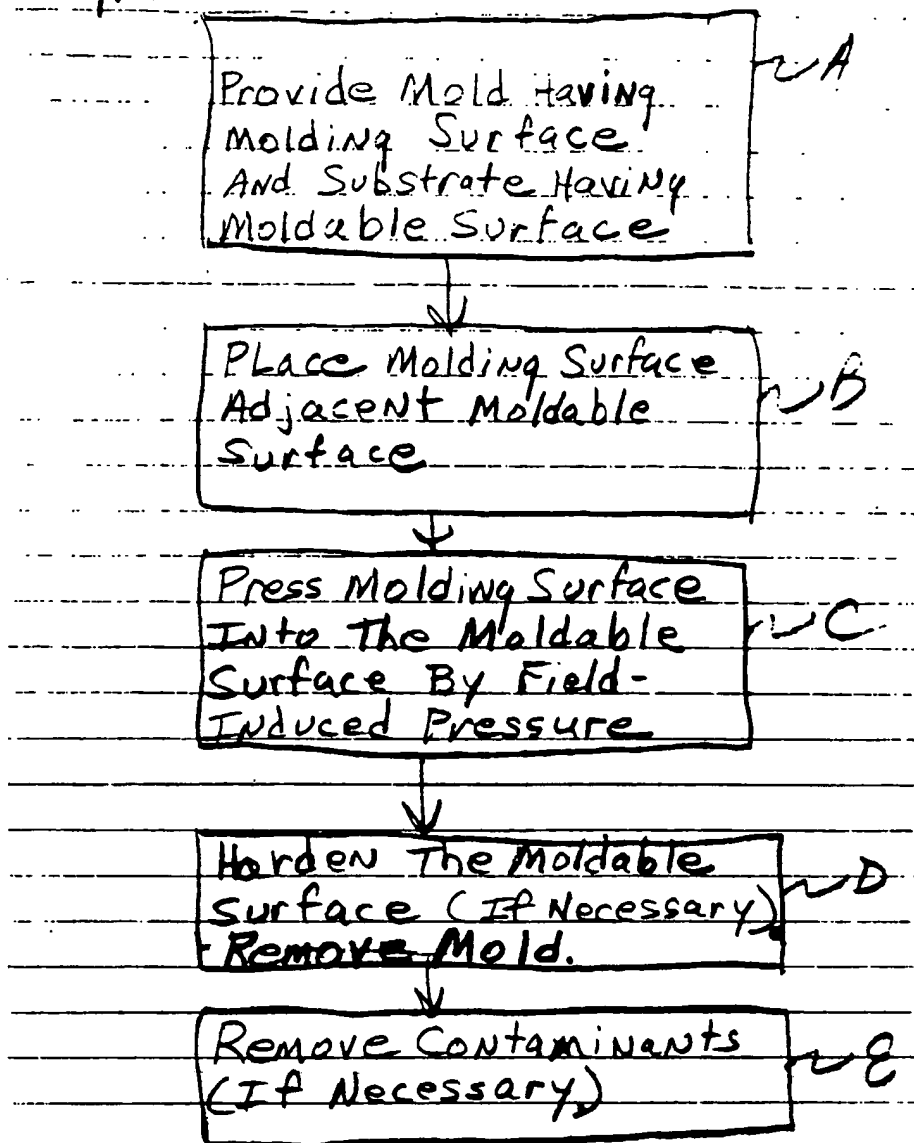 Provide Mold Having
Molding Surface
And Substrate Having
Moldable Surface
A
Place Molding Surface
Adjacent Moldable
Surface
B
Press Molding Surface
Into The Moldable
Surface By Field-
Induced Pressure
C
Harden The Moldable
Surface (If Necessary).
Remove Mold.
D
Remove Contaminants
(If Necessary.)
E